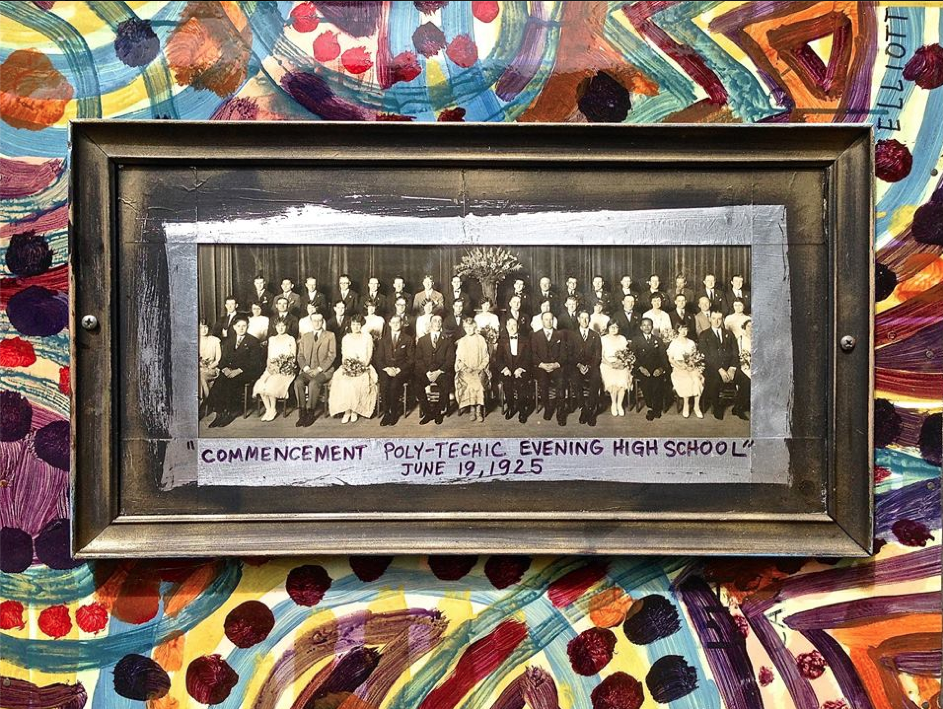 ELLIOTT
"COMMENCEMENT POLY-TECHIC EVENING HIGH SCHOOL"
JUNE 19, 1925